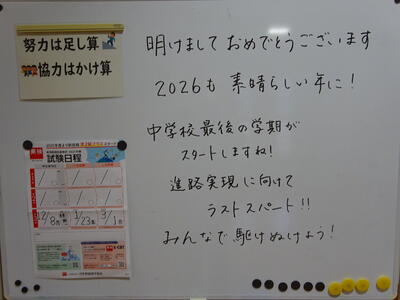 努力は足し算
協力はかけ算
明けましておめでとうございます
2026も 素晴らしい年に!
中学校最後の学期が
スタートしますね!
進路実現に向けて
ラストスパート!!
みんなで駆けぬけよう!
試験日程